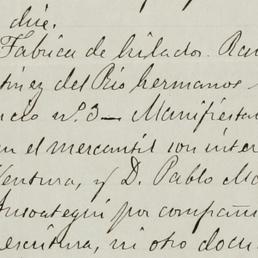 die.
Fabrica de hilados. Ra
tinez del Rio hermanos
nº 3 — Manifiestan
en el mercantil son inter
Ventura, y D. Pablo Ma
por compañi
escritura, ni otro docu